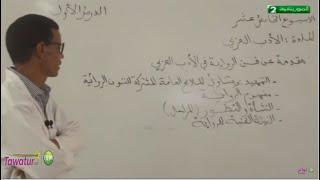 الدرس الأول
الأسبوع الخامس عشر
المادة: الأدب العربي
مقدمة عن فن الرواية في الأدب العربي
- التمهيد العام المشتركة للفنون الروائية
- مفهوم الرواية
- النشأة والتطور (المراحل)
- البنية الفنية للرواية
2
Tawatur